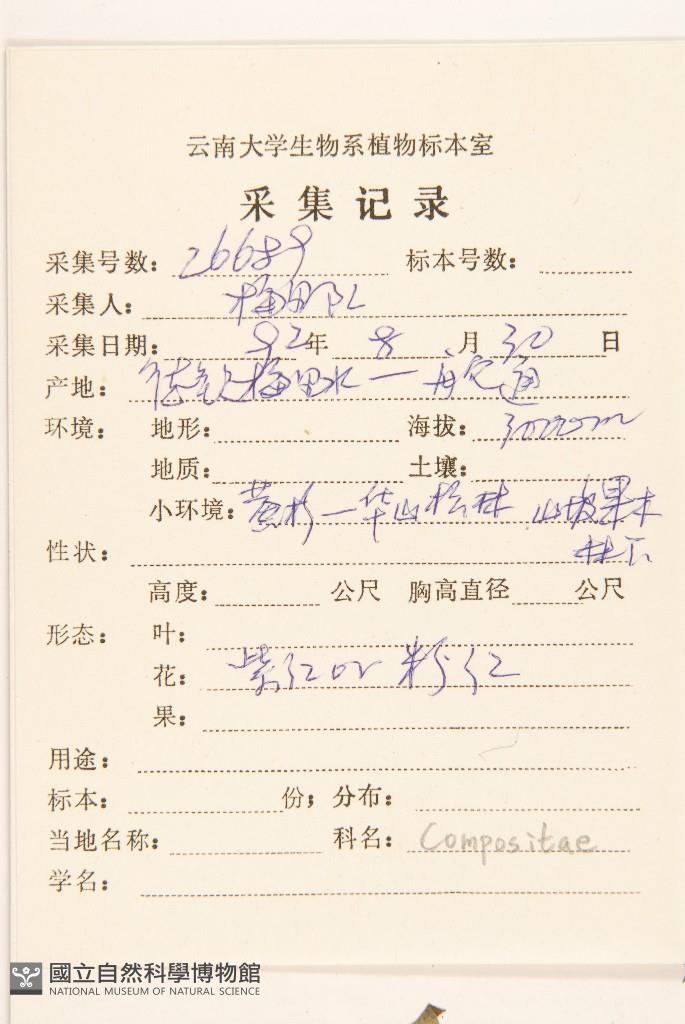 云南大学生物系植物标本室
采集记录
采集号数： 26689 标本号数：
采集人： 梅里队
采集日期： 92年 8 月 30 日
产地： 德钦梅里水一
环境： 地形： 海拔： 3000m
地质： 土壤：
小环境： 黄杉—华山松林 山坡 木
林下
性状：
高度： 公尺 胸高直径 公尺
形态： 叶：
花： 紫红or粉红
果：
用途：
标本： 份； 分布：
当地名称： 科名： Compositae
学名：
國立自然科學博物館
NATIONAL MUSEUM OF NATURAL SCIENCE